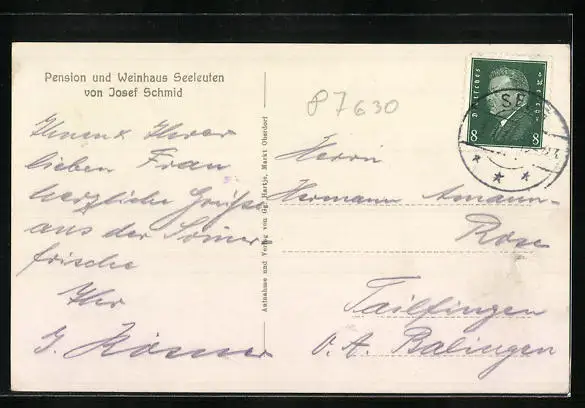 Pension und Weinhaus Seeleuten
von Josef Schmid
Ihnen & Ihrer
lieben Frau
herzliche Grüße
aus der Somer
frische
Ihr
J. Rösner
Aufnahme und Verlag von Gg. Hartje, Markt Oberdorf
87630
Deutsches Reich
8 8
SEE
Herrn
Hermann Amann-
Rose
Tailfingen
O. A. Balingen